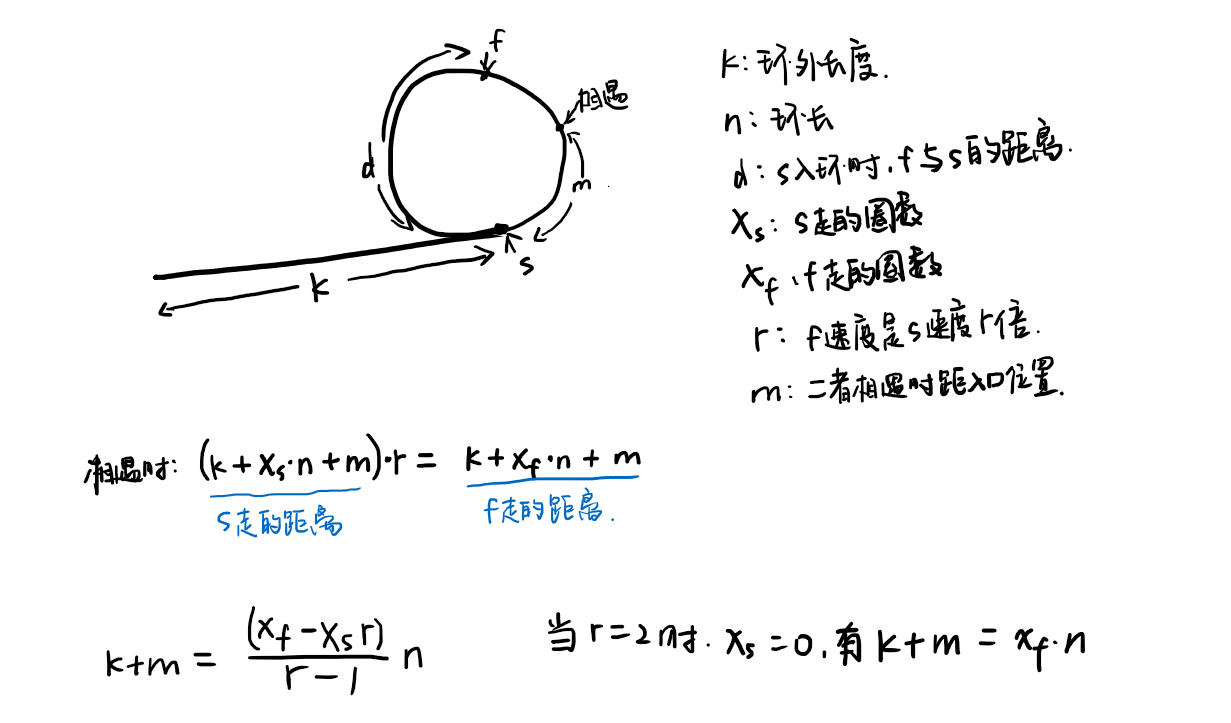 f
相遇
d
m
s
k
k：环外长度.
n：环长
d：s入环时,f与s的距离.
Xs：s走的圈数
Xf、f走的圈数
r：f速度是s速度r倍.
m：二者相遇时距入口位置.
相遇时：(k+Xs·n+m)·r = k+Xf·n+m
s走的距离
f走的距离.
k+m = (Xf-Xsr)/(r-1) n
当r=2时.Xs=0,有k+m=Xf·n